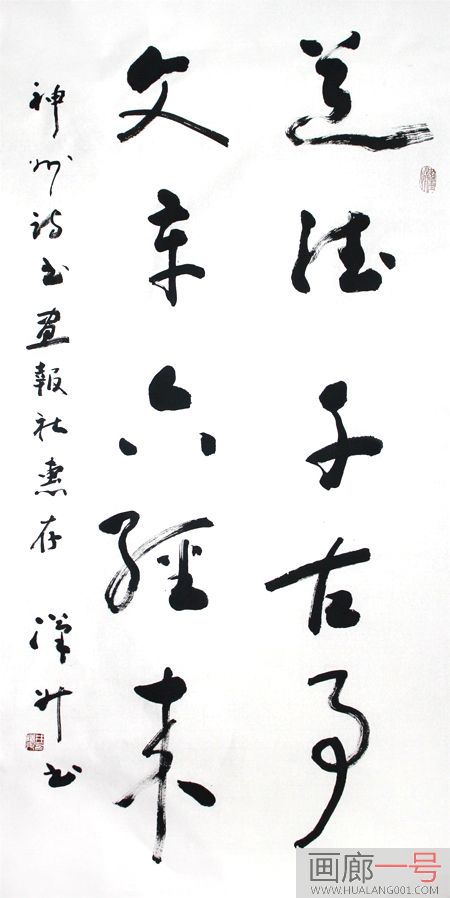 道德千古事
文章六經来
神州诗书畫報社惠存
书
画廊一号
WWW.HUALANG001.COM